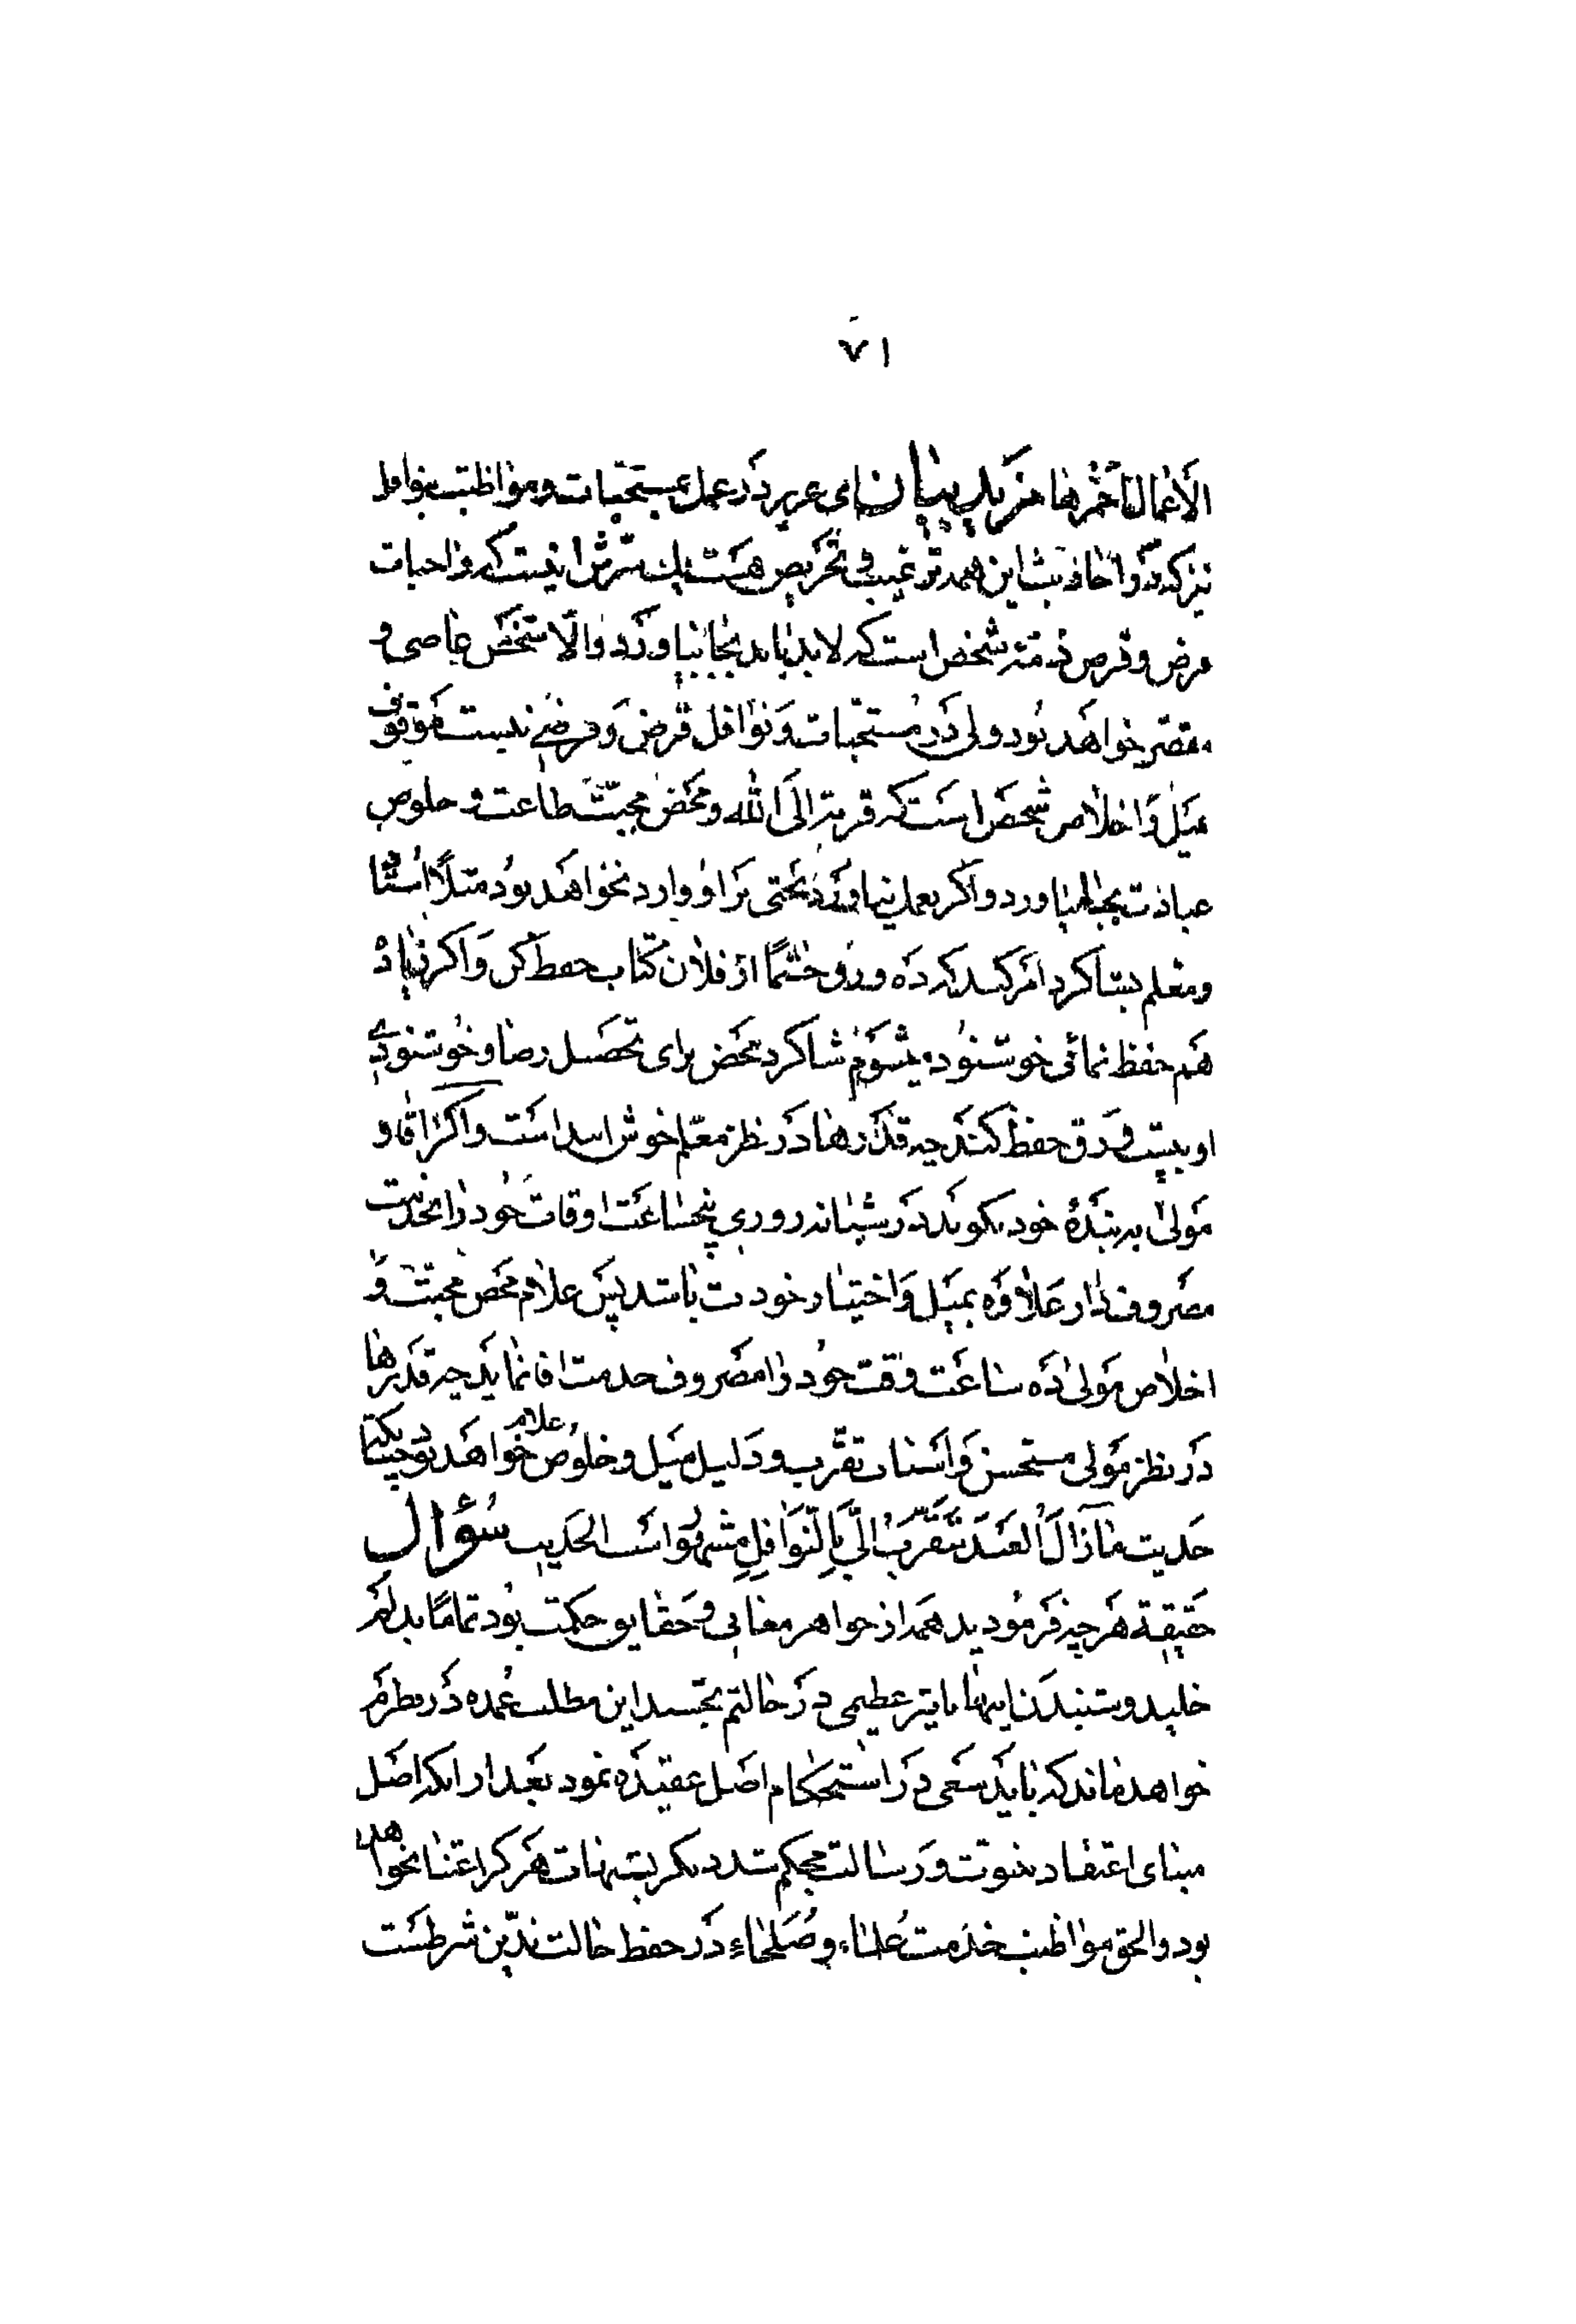 ۷۱
الأعمال أحمزها مزید بیان ای عزیز در عمل بمستحبات و مواظبت بنوافل
نیز که در اخادیث این همه ترغیب و تحریص هست یك سرش اینست که واجبات
فرض و قرض ذمته شخص است که لابد باید بجا بیاورد و الّا شخص عاصی و
مقصّر خواهد بود ولی در مستحبّات و نوافل قرض و فرضی نیست موقوف
میل و اخلاص شخص است که قربة الی الله و محض محبّت طاعت و خلوص
عبادت بجا میاورد و اگر بعمل نیاورد بحثی بر او وارد نخواهد بود مثلاً استاد
و معلم بشاگرد امر کند که ده ورق حتماً از فلان کتاب حفظ کن و اگر زیاد
هم حفظ نمائی خوشنود میشوم شاگرد محض برای تحصیل رضا و خوشنودی
او بیست ورق حفظ کند چه قدرها در نظر معلم خوش ایند است و اگر اقا و
مولی به بندهٔ خود بگوید که در شبانه روزی پنجساعت اوقات خود را بخدمت
مصروف دار علاوه بمیل و اختیار خودت باشد پس غلام محض محبّت و
اخلاص مولی ده ساعت وقت خود را مصروف خدمت اقا نماید چه قدرها
در نظر مولی مستحسن و اسباب تقرّب و دلیل میل و خلوص غلام خواهد بود چنانکه
حدیث ما زال العبد یتقرّب الیّ بالنّوافل مشهور است الحدیث سؤال
حقیقة هر چه فرمودید همه از جواهر معانی و حقایق حکمت بود تماماً بدلم
خلید و شنیدن اینها تاثیر عظیمی در حالتم بخشید این مطلب عمده در نظرم
خواهد ماند که باید سعی در استحکام اصل عقیده نمود بعد از انکه اصل
مبنای اعتقاد بنبوّت و رسالت محکم شد دیگر بشبهات هرگز اعتنا نخواهد
بود والحق مواظبت خدمت علماء و صلحاء در حفظ حالت تدیّن شرطست